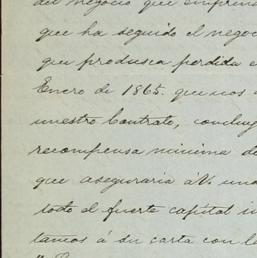 del negocio que empren
que ha seguido el negoc
que produsca perdida e
Enero de 1865. que nos
nuestro Contrato, concluy
recompensa minima de
que aseguraria á V. una
todo el fuerte capital i
tamos á su carta con l